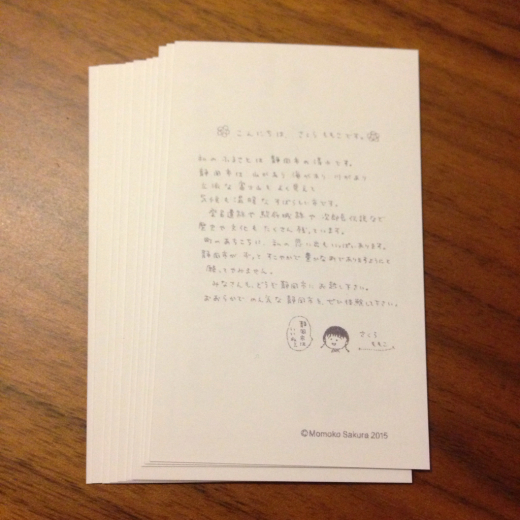 こんにちは、さくらももこです。
私の ふるさとは 静岡市の清水です。
静岡市は 山があり 海があり 川があり
立派な 富士山も よく見えて
気候も温暖な すばらしい所です。
登呂遺跡や 駿府城跡や 次郎長伝説など
歴史や文化も たくさん残っています。
町のあちこちに、私の 思い出もいっぱいあります。
静岡市が ずっと すこやかで 豊かな町でありますようにと
願ってやみません。
みなさんも、どうぞ静岡市にお越し下さい。
おおらかで のん気な 静岡市を、ぜひ体験して下さい。
静岡市は
いいねぇ
さくら
ももこ
©Momoko Sakura 2015